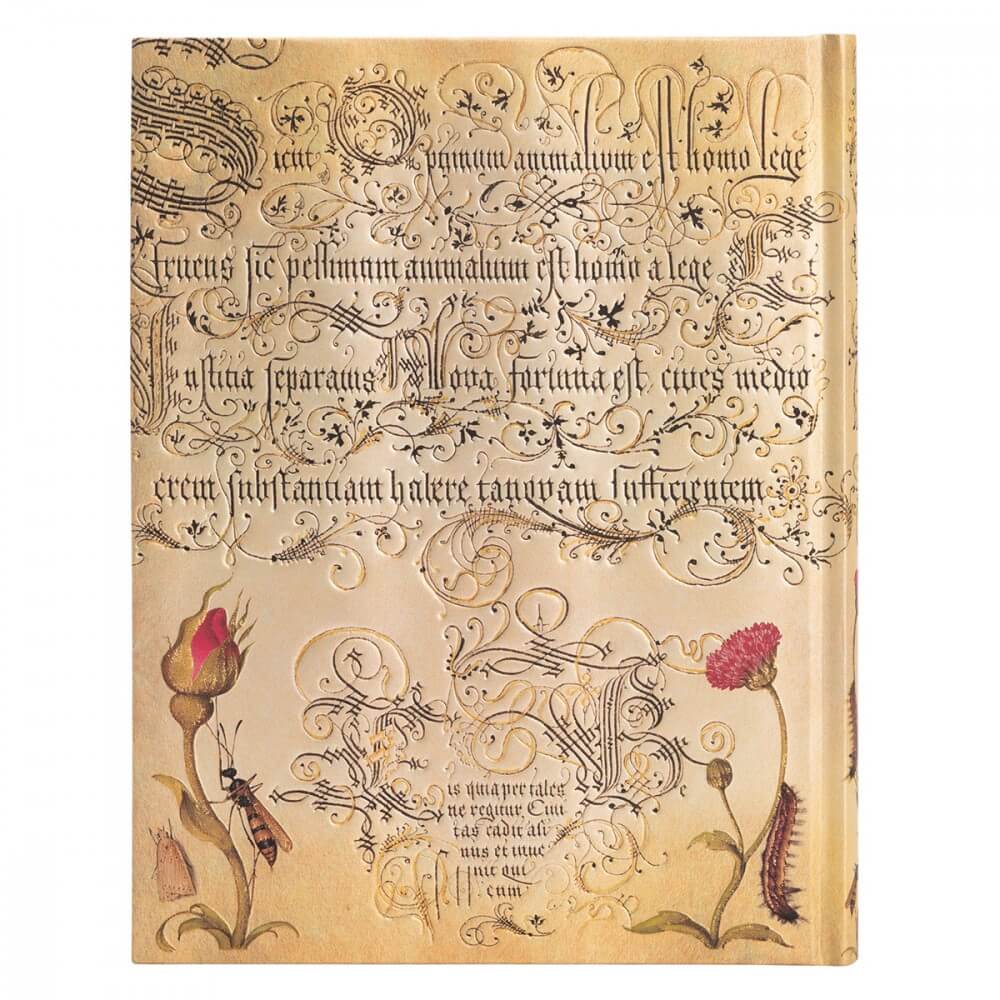 Dicit Optimum animalium est homo lege
fruens sic pessimum animalium est homo a lege Et
Iustitia separatus Nova fortuna est, cives medio
crem substantiam habere tanquam sufficientem
is quia per tales
ne regitur Civi
tas cadit asi
nus et inve
nit qui
eum